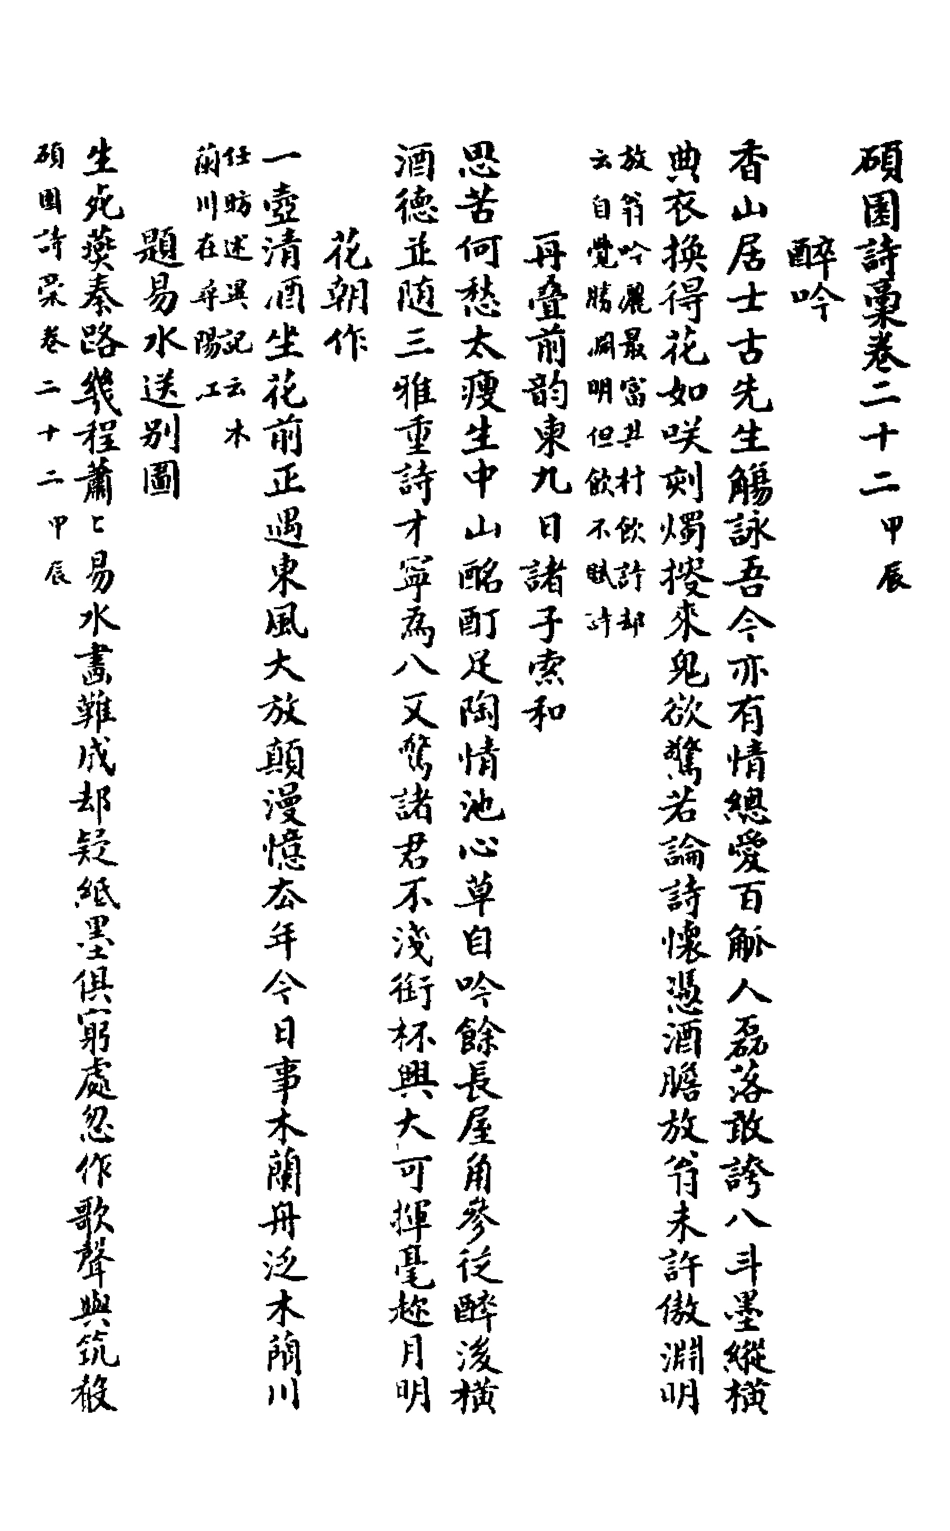 碩園詩稾卷二十二 甲辰
醉吟
香山居士古先生觴詠吾今亦有情總愛百觚人磊落敢誇八斗墨縱橫
典衣換得花如咲刻燭搜來鬼欲驚若論詩懷憑酒膽放翁未許傲淵明
放翁吟麗最富其村飲詩却
云自覺勝淵明但飲不賦詩
再疊前韵柬九日諸子索和
思苦何愁太瘦生中山酩酊足陶情池心草自吟餘長屋角參從醉後橫
酒德並隨三雅重詩才寧為八叉驚諸君不淺銜杯興大可揮毫趂月明
花朝作
一壺清酒坐花前正遇東風大放顛漫憶去年今日事木蘭舟泛木蘭川
任昉述異記云木
蘭川在尋陽江
題易水送別圖
生死燕秦路幾程蕭〻易水畫難成却疑紙墨俱窮處忽作歌聲與筑聲
碩園詩稾卷二十二 甲辰